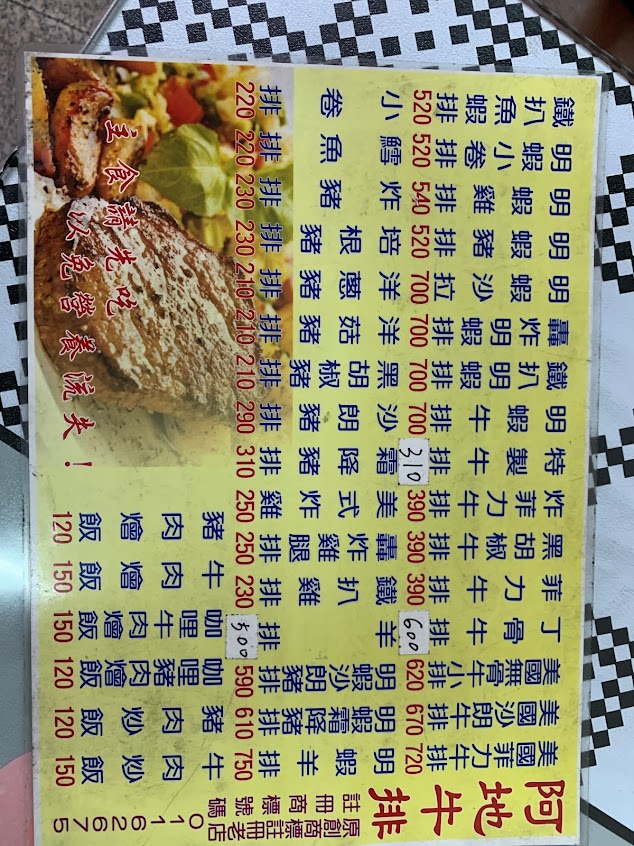 阿地牛排
註冊商標號碼
原創商標註冊老店
01162675
美國菲力牛排 720
美國沙朗牛排 670
美國無骨牛小排 620
丁骨牛排 600
菲力牛排 390
黑胡椒牛排 390
炸菲力牛排 390
特製牛排 310
明蝦牛排 700
鐵扒明蝦排 700
轟炸明蝦排 700
明蝦沙拉 700
明蝦豬排 520
明蝦雞排 540
明蝦小卷排 520
鐵扒魚排 520
明蝦羊排 750
明蝦霜降豬排 610
明蝦沙朗豬排 590
羊排 500
鐵扒雞排 230
轟炸雞腿排 250
美式炸雞排 250
霜降豬排 310
沙朗豬排 290
黑胡椒豬排 210
洋菇豬排 210
洋蔥豬排 210
培根豬排 230
炸豬排 230
鱈魚排 220
小卷排 220
牛肉炒飯 150
豬肉炒飯 120
咖哩豬肉燴飯 120
咖哩牛肉燴飯 150
牛肉燴飯 150
豬肉燴飯 120
主食請先吃
以免營養流失!